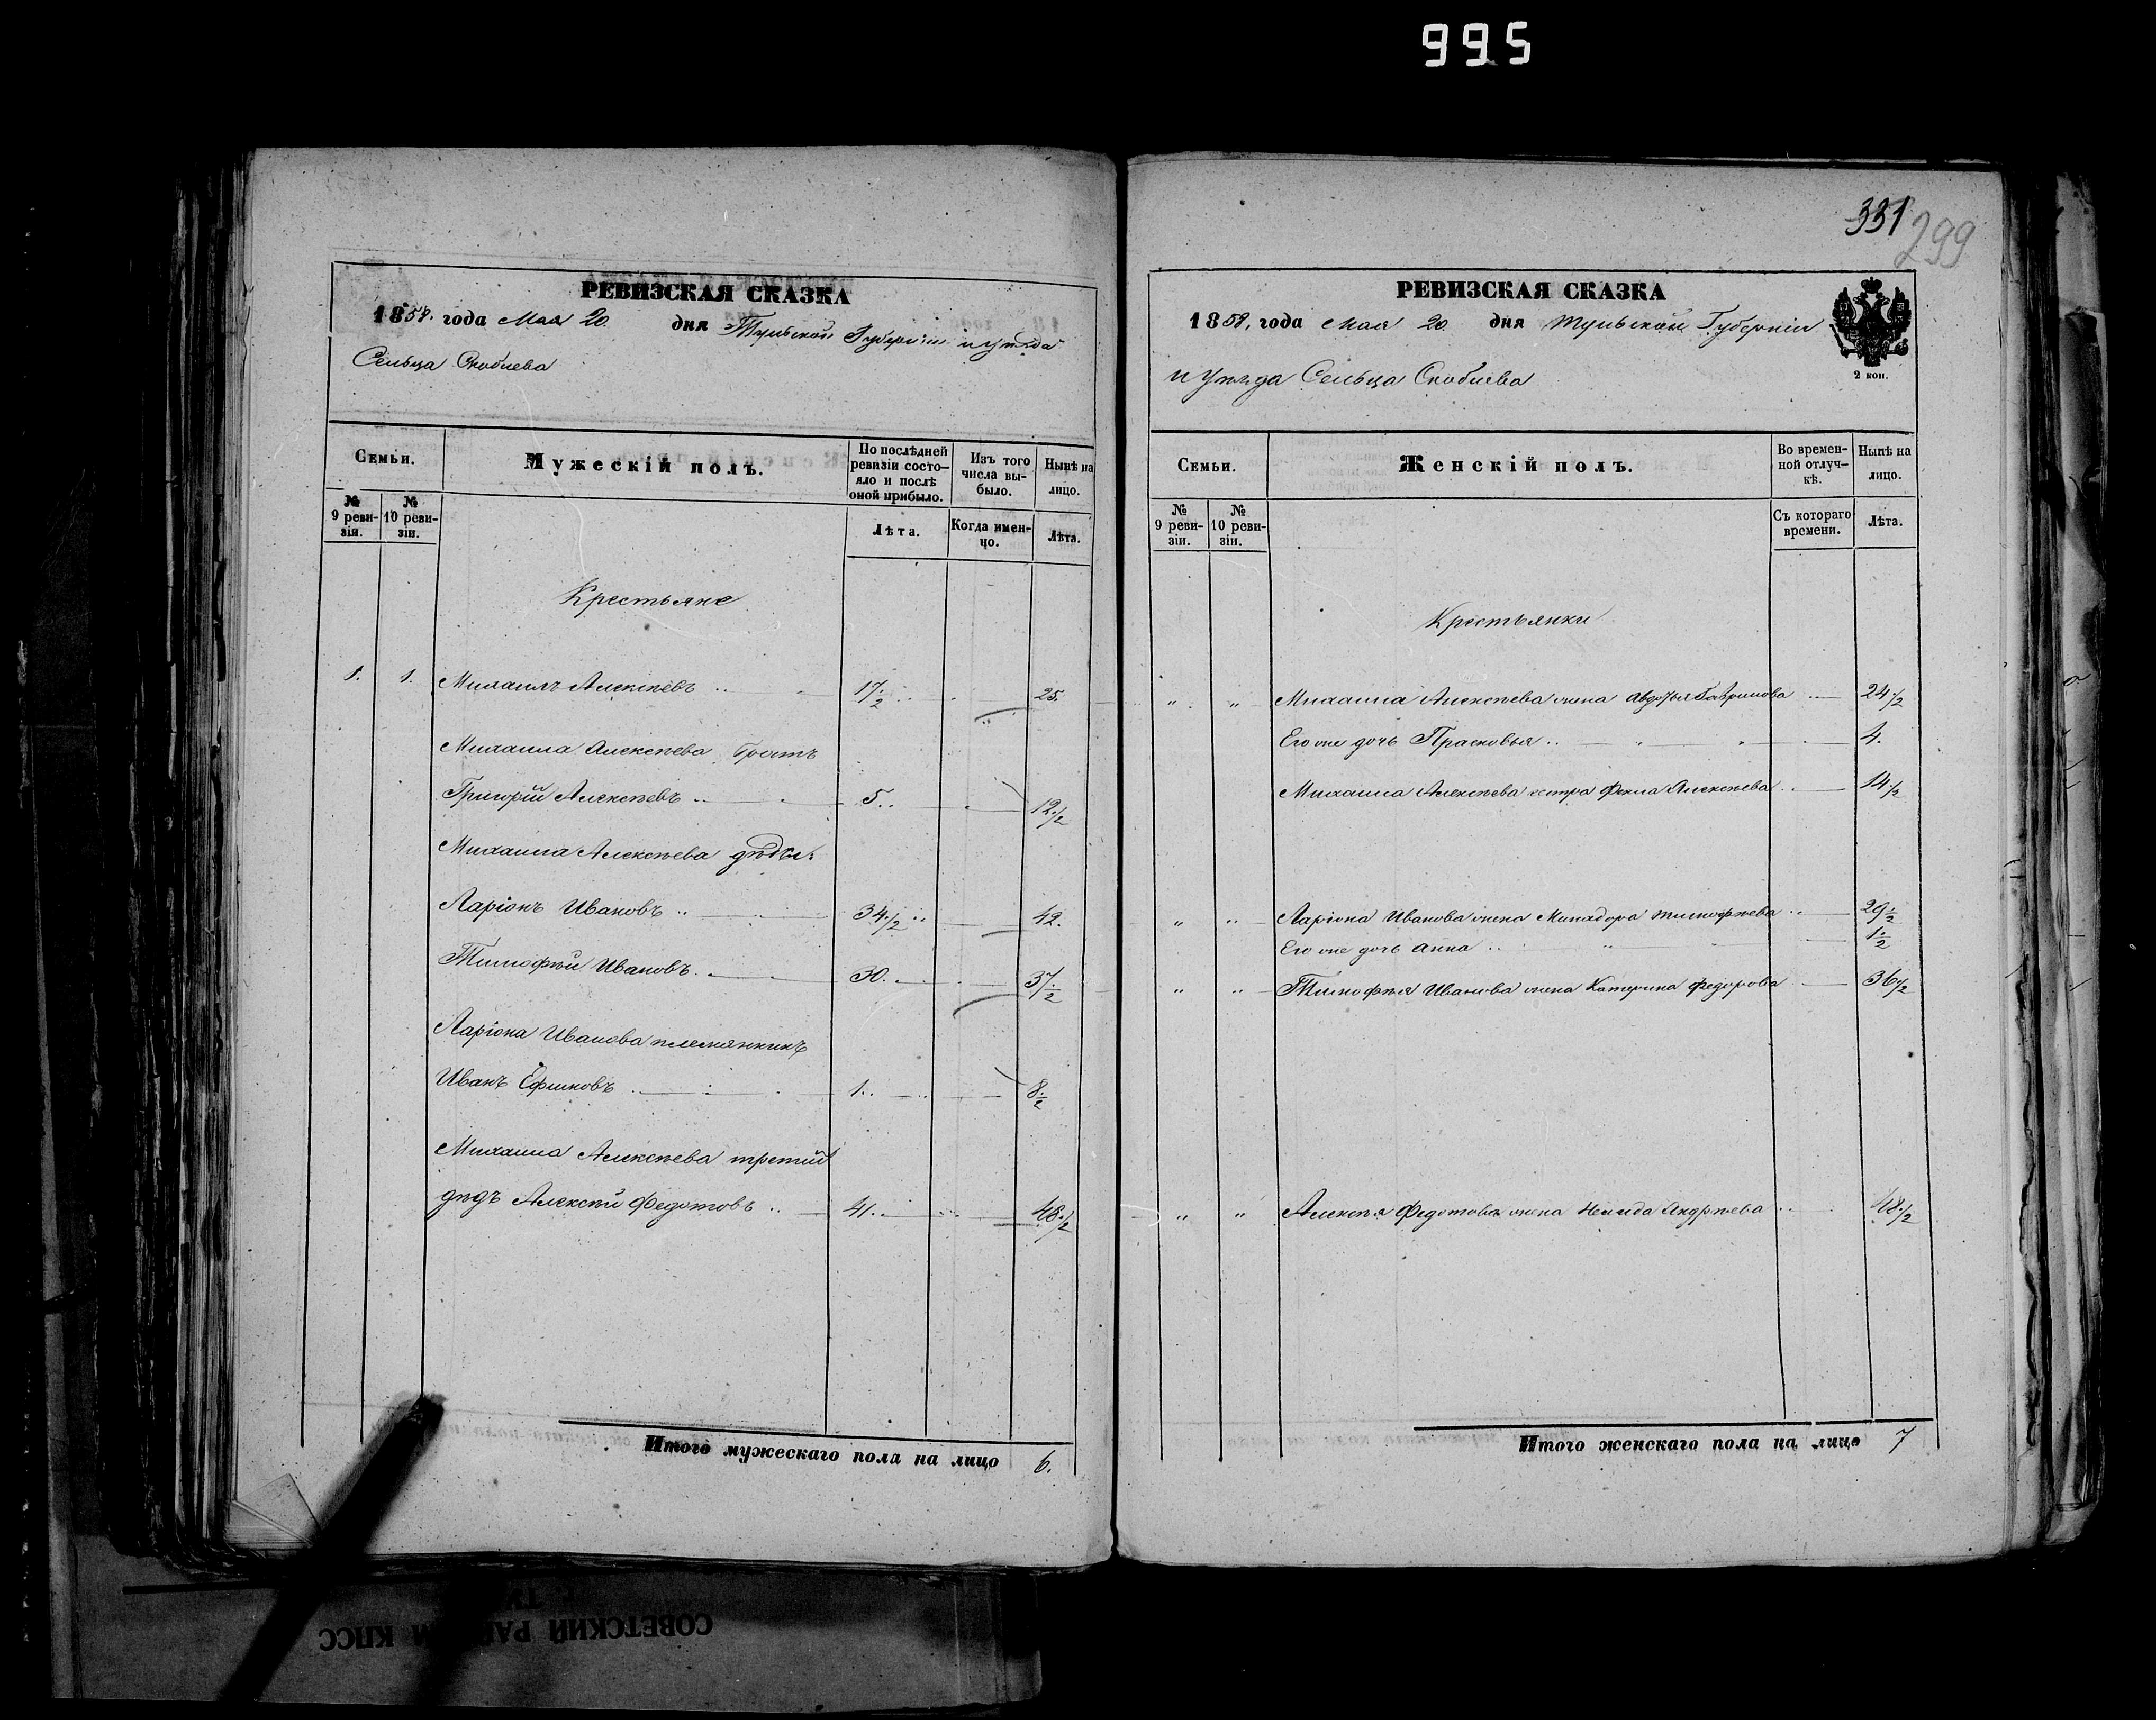 995
РЕВИЗСКАЯ СКАЗКА
1858. года Мая 20 дня Тульской Губерніи и уѣзда
Сельца Скобиева
Семьи.
Мужескій полъ.
По послѣдней ревизіи состо-
яло и послѣ
оной прибыло.
Изъ того
числа вы-
было.
Нынѣ на
лицо.
№
9 реви-
зіи.
№
10 реви-
зіи.
Лѣта.
Когда имен-
но.
Лѣта.
Крестьяне
1. 1. Михаилъ Алексѣевъ 17 1/2 25.
Михаила Алексѣева братъ
Григорій Алексѣевъ 5. 12 1/2
Михаила Алексѣева дѣды
Ларіонъ Ивановъ 34 1/2 42.
Тимофѣй Ивановъ 30. 37 1/2
Ларіона Иванова племянникъ
Иванъ Ефимовъ 1. 8 1/2
Михаила Алексѣева третій
дѣдъ Алексѣй Федотовъ 41. 48 1/2
Итого мужескаго пола на лицо 6.
331
299
РЕВИЗСКАЯ СКАЗКА
1858, года Мая 20 дня Тульской Губерніи
2 коп.
и уѣзда Сельца Скобиева
Семьи.
Женскій полъ.
Во времен-
ной отлуч-
кѣ.
Нынѣ на
лицо.
№
9 реви-
зіи.
№
10 реви-
зіи.
Съ котораго
времени.
Лѣта.
Крестьянки
" " Михаила Алексѣева жена Авдотья Гаврилова 24 1/2
Его же дочь Прасковья 4.
Михаила Алексѣева сестра Фекла Алексѣева 14 1/2
" " Ларіона Иванова жена Минадора Тимофѣева 29 1/2
Его же дочь Анна 1 1/2
" " Тимофѣя Иванова жена Катерина Федорова 36 1/2
" " Алексѣя Федотова жена Андрѣева 48 1/2
Итого женскаго пола на лицо 7
СОВЕТСКИЙ КПСС